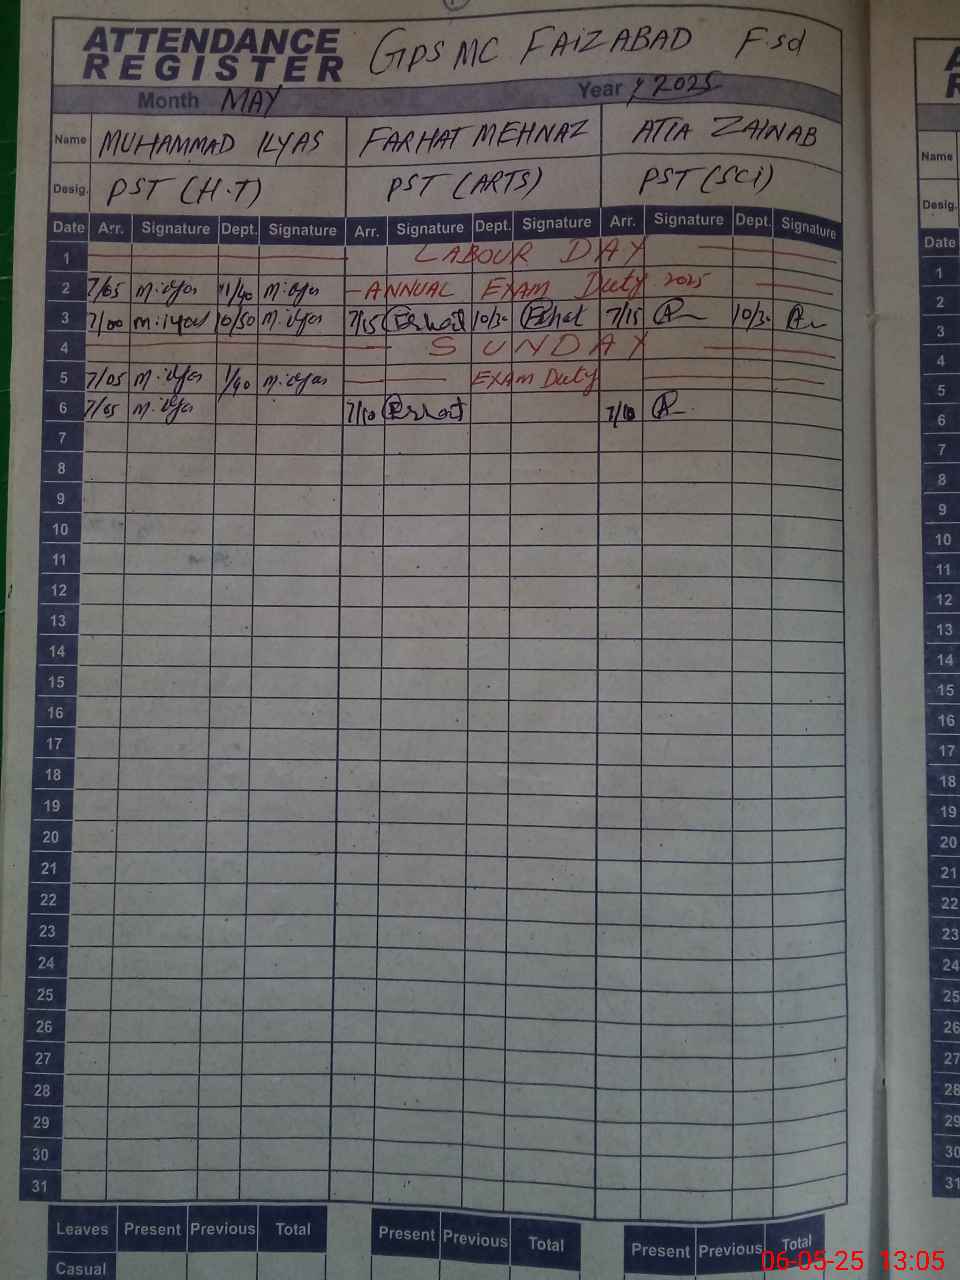 ATTENDANCE REGISTER GPS MC FAIZABAD F.sd
Month MAY Year 2025
Name MUHAMMAD ILYAS FARHAT MEHNAZ ATIA ZAINAB
Desig. PST (H.T) PST (ARTS) PST (SCI)
Date Arr. Signature Dept. Signature Arr. Signature Dept. Signature Arr. Signature Dept. Signature
1 LABOUR DAY
2 7/05 M.ilyas 1/40 M.ilyas ANNUAL EXAM Duty 2025
3 7/00 M.ilyas 10/50 M.ilyas 7/15 10/30 7/15 10/30
4 SUNDAY
5 7/05 M.ilyas 1/40 M.ilyas EXAM Duty
6 7/05 M.ilyas 7/10 7/10
7
8
9
10
11
12
13
14
15
16
17
18
19
20
21
22
23
24
25
26
27
28
29
30
31
Leaves Present Previous Total Present Previous Total Present Previous Total
Casual
Name
Desig.
Date
1
2
3
4
5
6
7
8
9
10
11
12
13
14
15
16
17
18
19
20
21
22
23
24
25
26
27
28
29
30
31
06-05-25 13:05